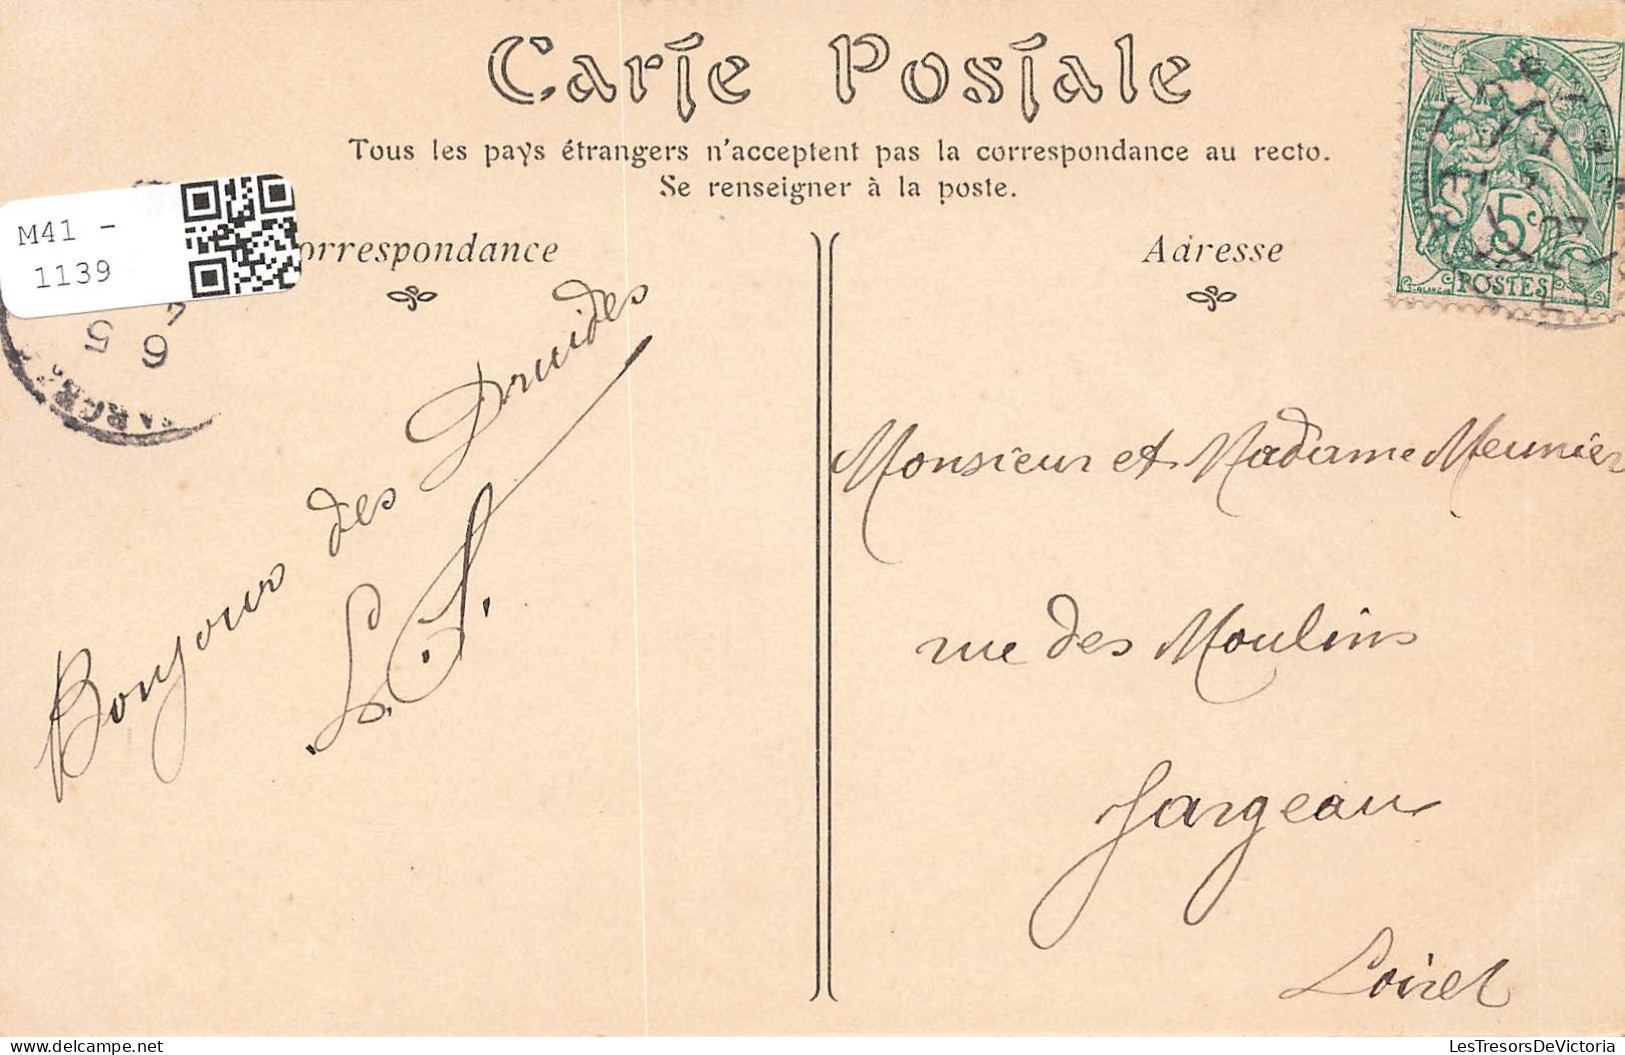 Carte Postale
Tous les pays étrangers n'acceptent pas la correspondance au recto.
Se renseigner à la poste.
M41 -
1139
orrespondance
Adresse
5c
POSTES
6 5
Bonjour des Druides
L. S.
Monsieur et Madame Meunier
rue des Moulins
Jargeau
Loiret
LesTresorsDeVictoria